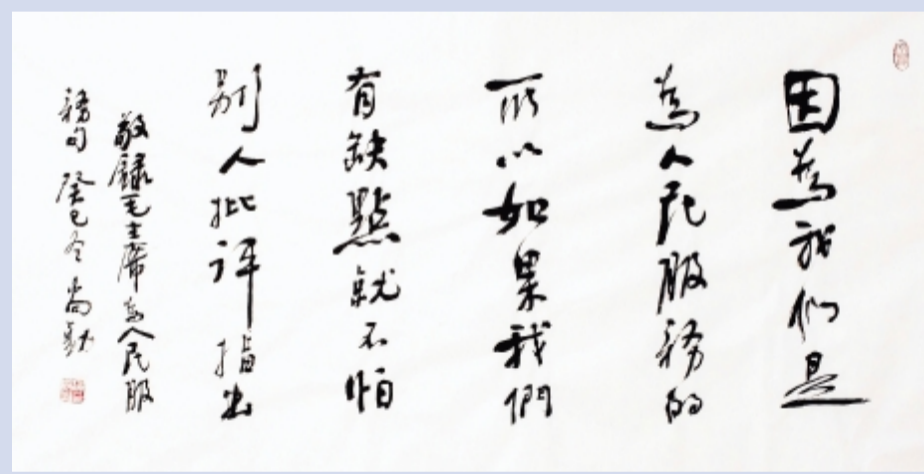 因為我们是
為人民服務的
所以如果我們
有缺點就不怕
别人批评指出
敬録毛主席為人民服
務句 癸巳冬 尚勤